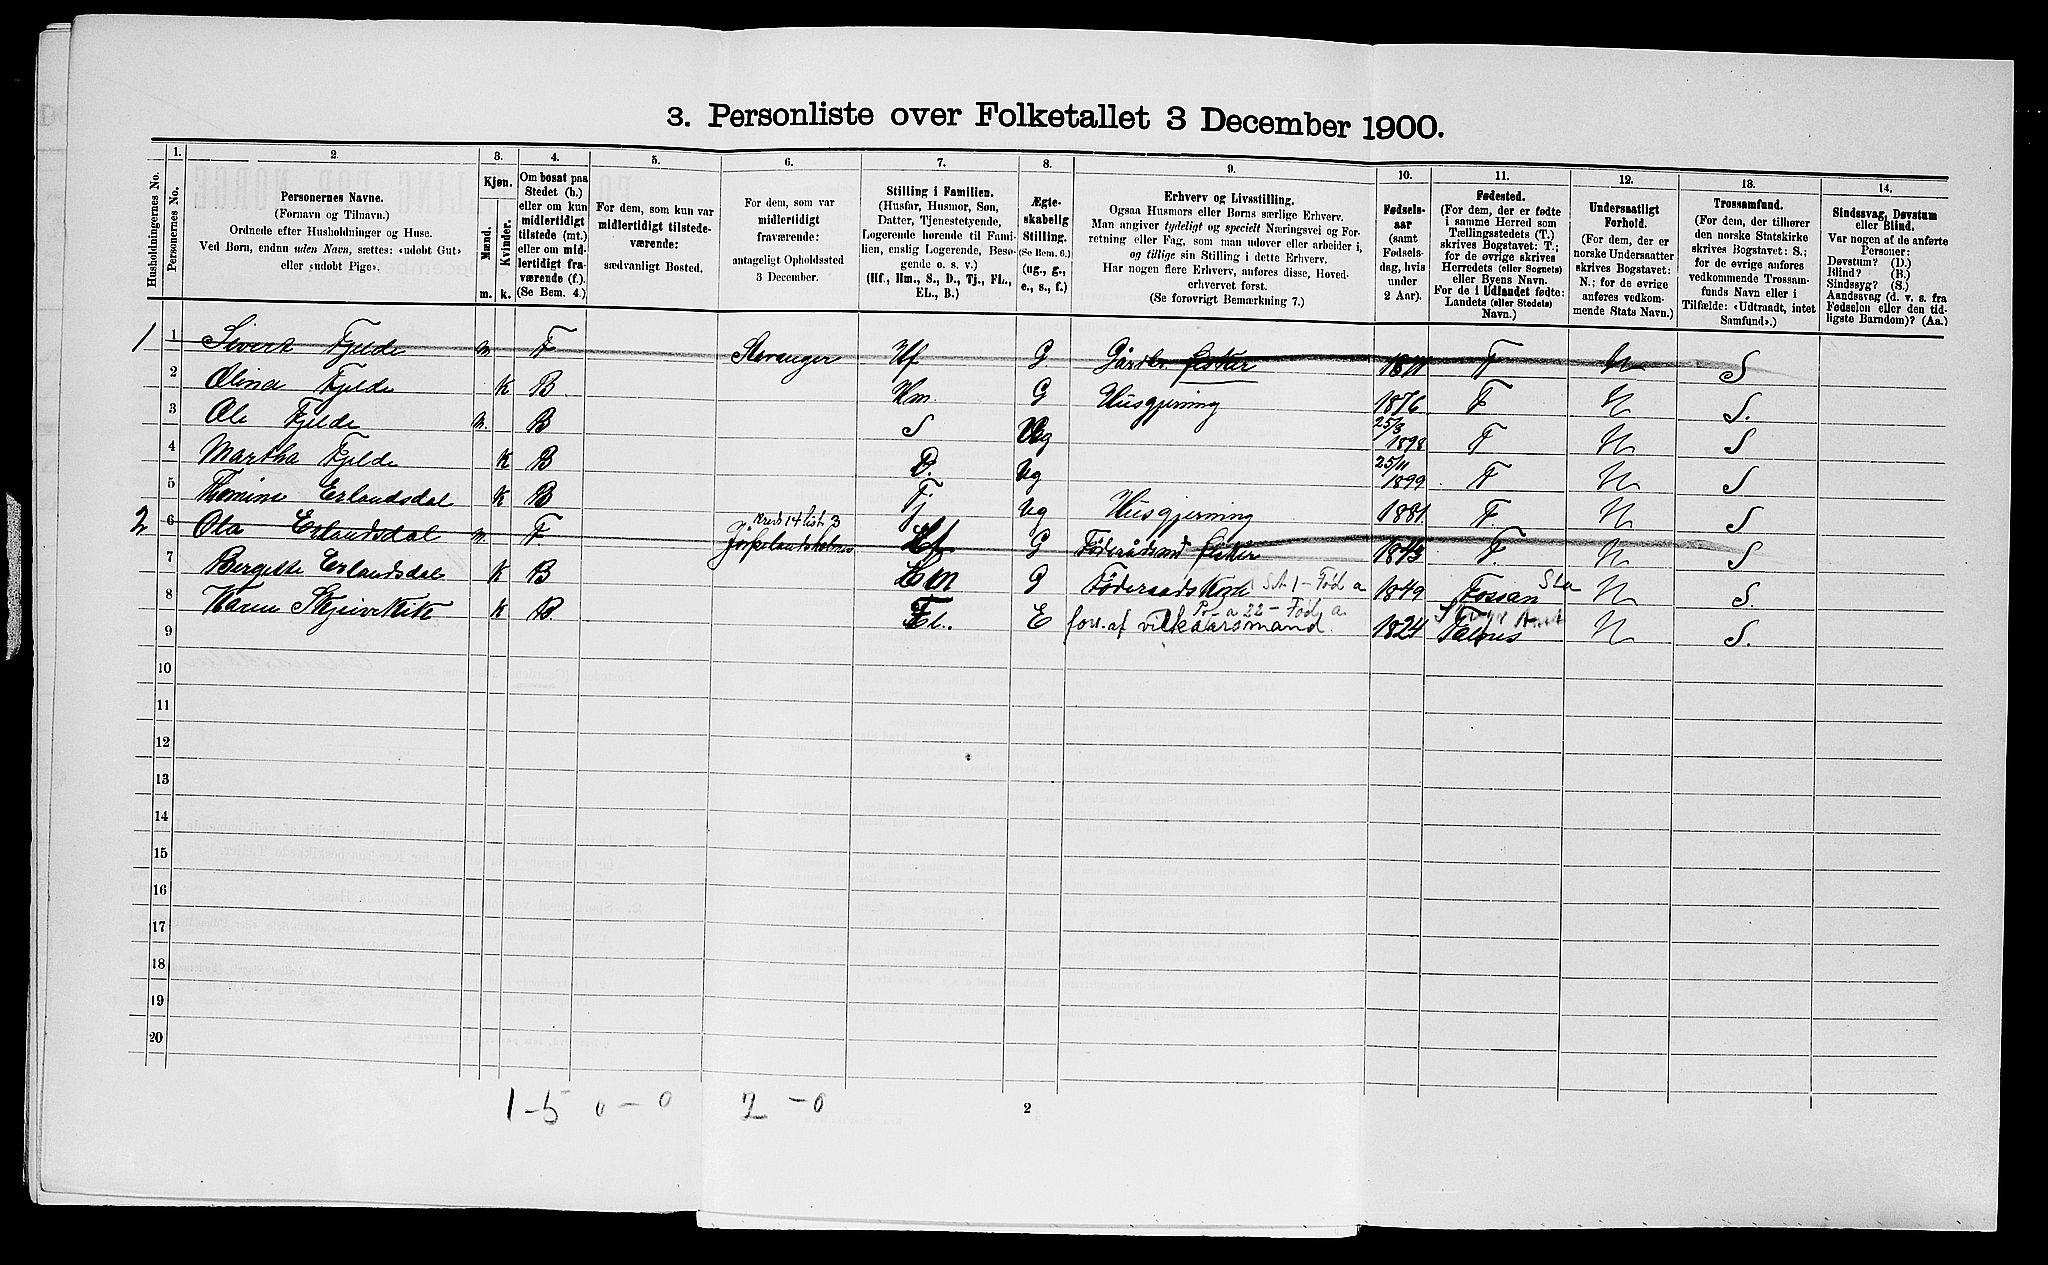 3. Personliste over Folketallet 3 December 1900.
Husholdningernes No.
1.
Personernes No.
2.
Personernes Navne.
(Fornavn og Tilnavn.)
Ordnede efter Husholdninger og Huse.
Ved Børn, endnu uden Navn, sættes: «udøbt Gut»
eller «udøbt Pige».
3.
Kjøn.
Mænd.
Kvinder.
m.
k.
4.
Om bosat paa
Stedet (b.)
eller om kun
midlertidigt
tilstede (mt.)
eller om mid-
lertidigt fra-
værende (f.)
(Se Bem. 4.)
5.
For dem, som kun var
midlertidigt tilstede-
værende:
sædvanligt Bosted.
6.
For dem, som var
midlertidigt
fraværende:
antageligt Opholdssted
3 December.
7.
Stilling i Familien.
(Husfar, Husmor, Søn,
Datter, Tjenestetyende,
Logerende hørende til Fami-
lien, enslig Logerende, Besø-
gende o. s. v.)
(Hf., Hm., S., D., Tj., FL.,
EL., B.)
8.
Ægte-
skabelig
Stilling.
(Se Bem. 6.)
(ug., g.,
e., s., f.)
9.
Erhverv og Livsstilling.
Ogsaa Husmors eller Børns særlige Erhverv.
Man angiver tydeligt og specielt Næringsvei og For-
retning eller Fag, som man udover eller arbeider i,
og tillige sin Stilling i dette Erhverv.
Har nogen flere Erhverv, anføres disse, Hoved-
erhvervet først.
(Se forøvrigt Bemærkning 7.)
10.
Fødsels-
aar
(samt
Fødsels-
dag, hvis
under
2 Aar).
11.
Fødested.
(For dem, der er fødte
i samme Herred som
Tællingsstedets (T.)
skrives Bogstavet: T.;
for de øvrige skrives
Herredets (eller Sognets)
eller Byens Navn.
For de i Udlandet fødte:
Landets (eller Stedets)
Navn.)
12.
Undersaatligt
Forhold.
(For dem, der er
norske Undersaatter
skrives Bogstavet:
N.; for de øvrige
anføres vedkom-
mende Stats Navn.)
13.
Trossamfund.
(For dem, der tilhører
den norske Statskirke
skrives Bogstavet: S.;
for de øvrige anføres
vedkommende Trossam-
funds Navn eller i
Tilfælde: «Udtraadt, intet
Samfund».)
14.
Sindssvag, Døvstum
eller Blind.
Var nogen af de anførte
Personer:
Døvstum? (D.)
Blind? (B.)
Sindssyg? (S.)
Aandssvag (d. v. s. fra
Fødselen eller den tid-
ligste Barndom)? (Aa.)
1 1 Sivert Fjelde m F Stavanger Hf G Gårdbr. fisker 1871 T N S
2 Olina Fjelde K B Hm. G Husgjerning 1876 T N S.
3 Ole Fjelde m. B S Ug 25/3 1898 T N S
4 Martha Fjelde K B D. Ug 25/11 1899 T N S
5 Erlandsdal K B Tj Ug Husgjerning 1881 T. N S
Kreds 14 liste 3
2 6 Ola Erlandsdal m. F Jørpelandsholmen Hf G Føderådsmand fisker 1843 T. N S
7 Bergitte Erlandsdal K B Hm G Føderaadskone 1849 Fossan N S.
8 Karen K B. El. E fors. af vilkaarsmand. 1824 N S.
9
10
11
12
13
14
15
16
17
18
19
20
1-5 0-0 2-0
2